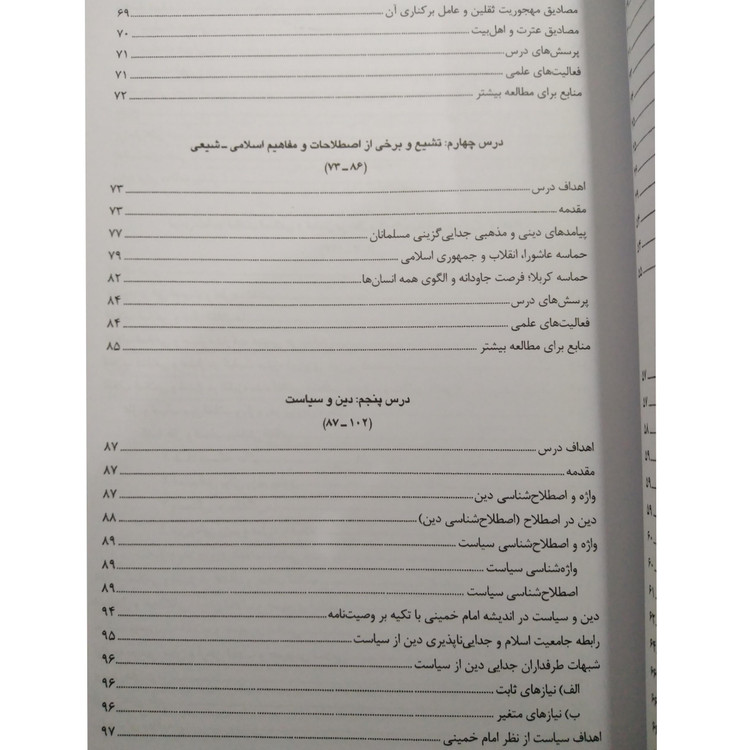 مصادیق مهجوریت ثقلین و عامل برکناری آن ... ۶۹
مصادیق عترت و اهل‌بیت ... ۷۰
پرسش‌های درس ... ۷۱
فعالیت‌های علمی ... ۷۱
منابع برای مطالعه بیشتر ... ۷۲
درس چهارم: تشیع و برخی از اصطلاحات و مفاهیم اسلامی ـ شیعی
(۷۳ ـ ۸۶)
اهداف درس ... ۷۳
مقدمه ... ۷۳
پیامدهای دینی و مذهبی جدایی‌گزینی مسلمانان ... ۷۷
حماسه عاشورا، انقلاب و جمهوری اسلامی ... ۷۹
حماسه کربلا؛ فرصت جاودانه و الگوی همه انسان‌ها ... ۸۲
پرسش‌های درس ... ۸۴
فعالیت‌های علمی ... ۸۴
منابع برای مطالعه بیشتر ... ۸۵
درس پنجم: دین و سیاست
(۸۷ ـ ۱۰۲)
اهداف درس ... ۸۷
مقدمه ... ۸۷
واژه و اصطلاح‌شناسی دین ... ۸۷
دین در اصطلاح (اصطلاح‌شناسی دین) ... ۸۸
واژه و اصطلاح‌شناسی سیاست ... ۸۹
واژه‌شناسی سیاست ... ۸۹
اصطلاح‌شناسی سیاست ... ۸۹
دین و سیاست در اندیشه امام خمینی با تکیه بر وصیت‌نامه ... ۹۴
رابطه جامعیت اسلام و جدایی‌ناپذیری دین از سیاست ... ۹۵
شبهات طرفداران جدایی دین از سیاست ... ۹۶
الف) نیازهای ثابت ... ۹۶
ب) نیازهای متغیر ... ۹۶
اهداف سیاست از نظر امام خمینی ... ۹۷